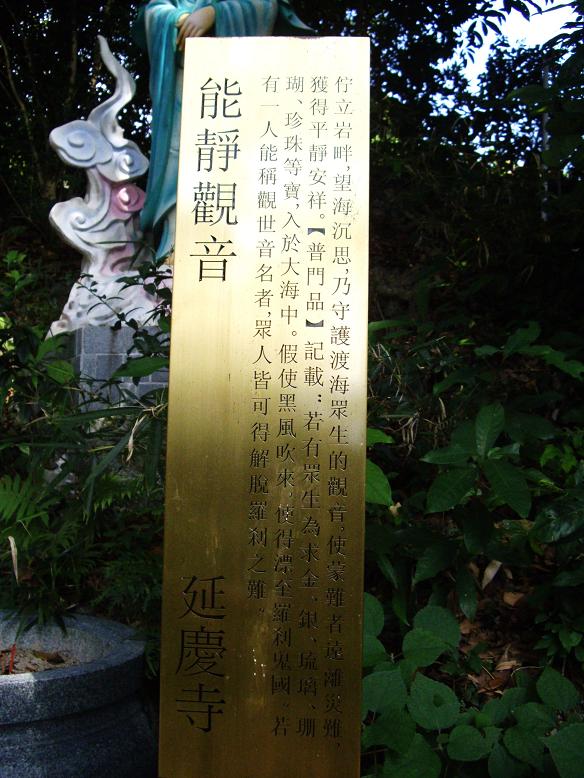 佇立岩畔，望海沉思，乃守護渡海眾生的觀音，使蒙難者遠離災難，
獲得平靜安祥。【普門品】記載：若有眾生為求金、銀、琉璃、珊
瑚、珍珠等寶，入於大海中。假使黑風吹來，使得漂至羅剎鬼國。若
有一人能稱觀世音名者，眾人皆可得解脫羅剎之難。
能靜觀音
延慶寺